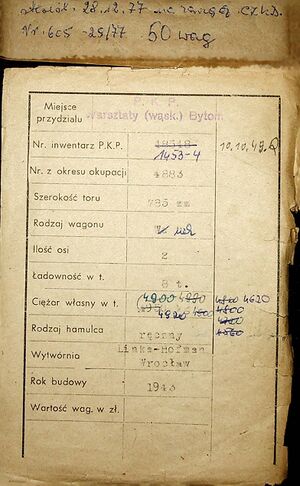 28.12.77 na
Nr. 605-29/77 50 wag
Miejsce przydziału P. K. P. Warsztaty (wąsk.) Bytom
Nr. inwentarz P.K.P. 1453-4 10.10.49.
Nr. z okresu okupacji 4883
Szerokość toru 785 mm
Rodzaj wagonu
Ilość osi 2
Ładowność w t. 8 t.
Ciężar własny w t. 4900 4880 4800 4620
4920 4800
Rodzaj hamulca ręczny
Wytwórnia Linke-Hofman Wrocław
Rok budowy 1943
Wartość wag. w zł.